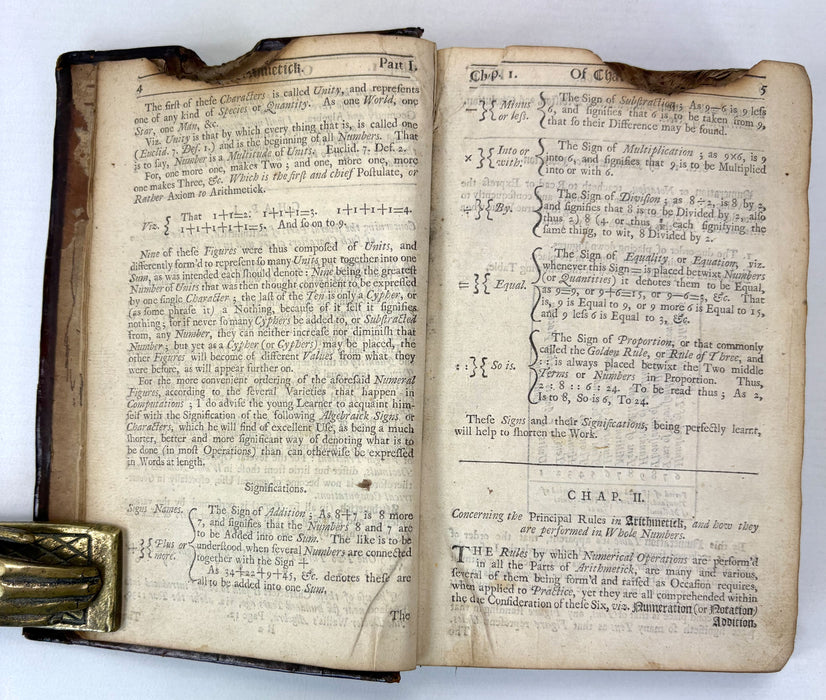 4 Arithmetick. Part I.
The first of these Characters is called Unity, and represents
one of any kind of Species or Quantity. As one World, one
Star, one Man, &c.
Viz. Unity is that by which every thing that is, is called one
(Euclid. 7. Def. 1.) and is the beginning of all Numbers. That
is to say, Number is a Multitude of Units. Euclid. 7. Def. 2.
For, one more one, makes Two; and one, more one, more
one makes Three, &c. Which is the first and chief Postulate, or
Rather Axiom to Arithmetick.
Viz. { That 1+1=2. 1+1+1=3. 1+1+1+1=4.
1+1+1+1+1=5. And so on to 9.
Nine of these Figures were thus composed of Units, and
differently form'd to represent so many Units put together into one
Sum, as was intended each should denote: Nine being the greatest
Number of Units that was then thought convenient to be expressed
by one single Character; the last of the Ten is only a Cypher, or
(as some phrase it) a Nothing, because of it self it signifies
nothing; for if never so many Cyphers be added to, or Substracted
from, any Number, they can neither increase nor diminish that
Number; but yet as a Cypher (or Cyphers) may be placed, the
other Figures will become of different Values from what they
were before, as will appear further on.
For the more convenient ordering of the aforesaid Numeral
Figures, according to the several Varieties that happen in
Computations; I do advise the young Learner to acquaint him-
self with the Signification of the following Algebraick Signs or
Characters, which he will find of excellent Use, as being a much
shorter, better and more significant way of denoting what is to
be done (in most Operations) than can otherwise be expressed
in Words at length.
Significations.
Signs Names. { The Sign of Addition; As 8+7 is 8 more
7, and signifies that the Numbers 8 and 7 are
to be Added into one Sum. The like is to be
+}{ Plus or understood when several Numbers are connected
more. together with the Sign +
As 34+22+9+45, &c. denotes these are
all to be added into one Sum.
The
Chap. 1. Of 5
−}{ Minus { The Sign of Substraction; As 9−6 is 9 less
or less. 6, and signifies that 6 is to be taken from 9,
that so their Difference may be found.
×}{ Into or { The Sign of Multiplication; as 9×6, is 9
with. into 6, and signifies that 9 is to be Multiplied
into or with 6.
÷}{ By. { The Sign of Division; as 8÷2, is 8 by 2,
and signifies that 8 is to be Divided by 2, also
thus 2) 8 (4, or thus 8/2 each signifying the
same thing, to wit, 8 Divided by 2.
=}{ Equal. { The Sign of Equality or Equation, viz.
whenever this Sign = is placed betwixt Numbers
(or Quantities) it denotes them to be Equal,
as 9=9, or 9+6=15, or 9−6=3, &c. That
is, 9 is Equal to 9, or 9 more 6 is Equal to 15,
and 9 less 6 is Equal to 3, &c.
: :}{ So is. { The Sign of Proportion, or that commonly
called the Golden Rule, or Rule of Three, and
: : is always placed betwixt the Two middle
Terms or Numbers in Proportion. Thus,
2 : 8 : : 6 : 24. To be read thus; As 2,
Is to 8, So is 6, To 24.
These Signs and their Significations, being perfectly learnt,
will help to shorten the Work.
CHAP. II.
Concerning the Principal Rules in Arithmetick, and how they
are performed in Whole Numbers.
THE Rules by which Numerical Operations are perform'd
in all the Parts of Arithmetick, are many and various,
several of them being form'd and raised as Occasion requires,
when applied to Practice, yet they are all comprehended within
the due Consideration of these Six, viz. Numeration (or Notation)
Addition,